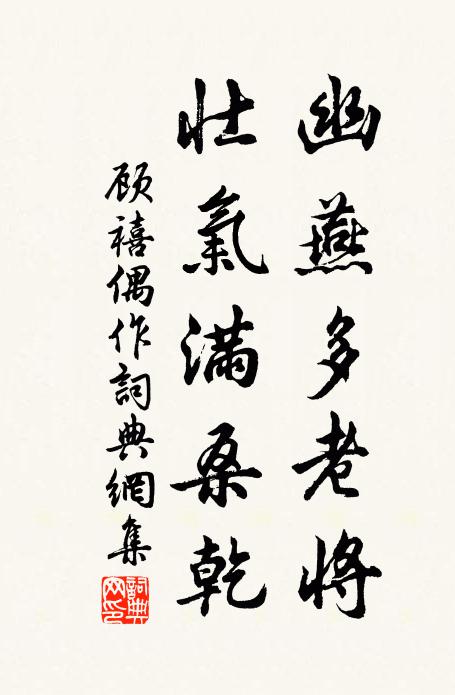 幽燕多老將
壯氣滿桑乾
顾禧偶作詞典網集
詞典網印